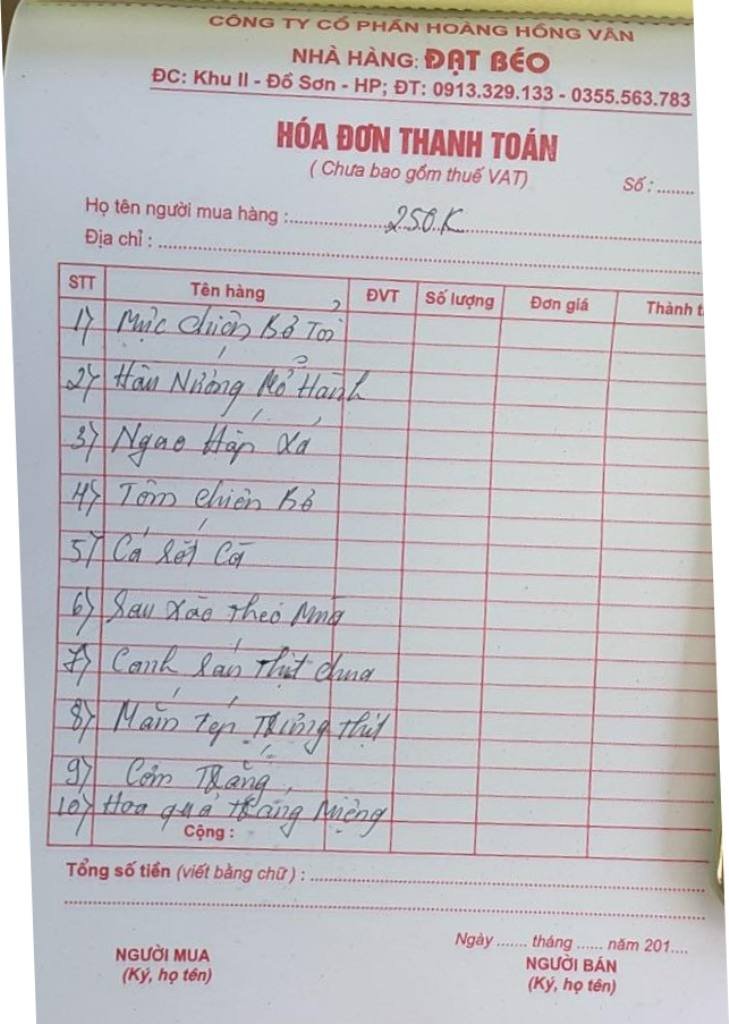 CÔNG TY CỔ PHẦN HOÀNG HỒNG VÂN
NHÀ HÀNG: ĐẠT BÉO
ĐC: Khu II - Đồ Sơn - HP; ĐT: 0913.329.133 - 0355.563.783
HÓA ĐƠN THANH TOÁN
( Chưa bao gồm thuế VAT)
Số : ........
Họ tên người mua hàng : 250.K
Địa chỉ :
STT Tên hàng ĐVT Số lượng Đơn giá Thành t
1) Mực chiên Bơ Tỏi
2) Hàu Nướng Mỡ Hành
3) Ngao Hấp Xả
4) Tôm chiên Bơ
5) Cá Sốt Cà
6) Rau Xào Theo Mùa
7) Canh Sấu Thịt chua
8) Mắm Tép Trưng Thịt
9) Cơm Trắng
10) Hoa quả Tráng Miệng
Cộng :
Tổng số tiền (viết bằng chữ) :
Ngày ....... tháng ...... năm 201....
NGƯỜI MUA NGƯỜI BÁN
(Ký, họ tên) (Ký, họ tên)